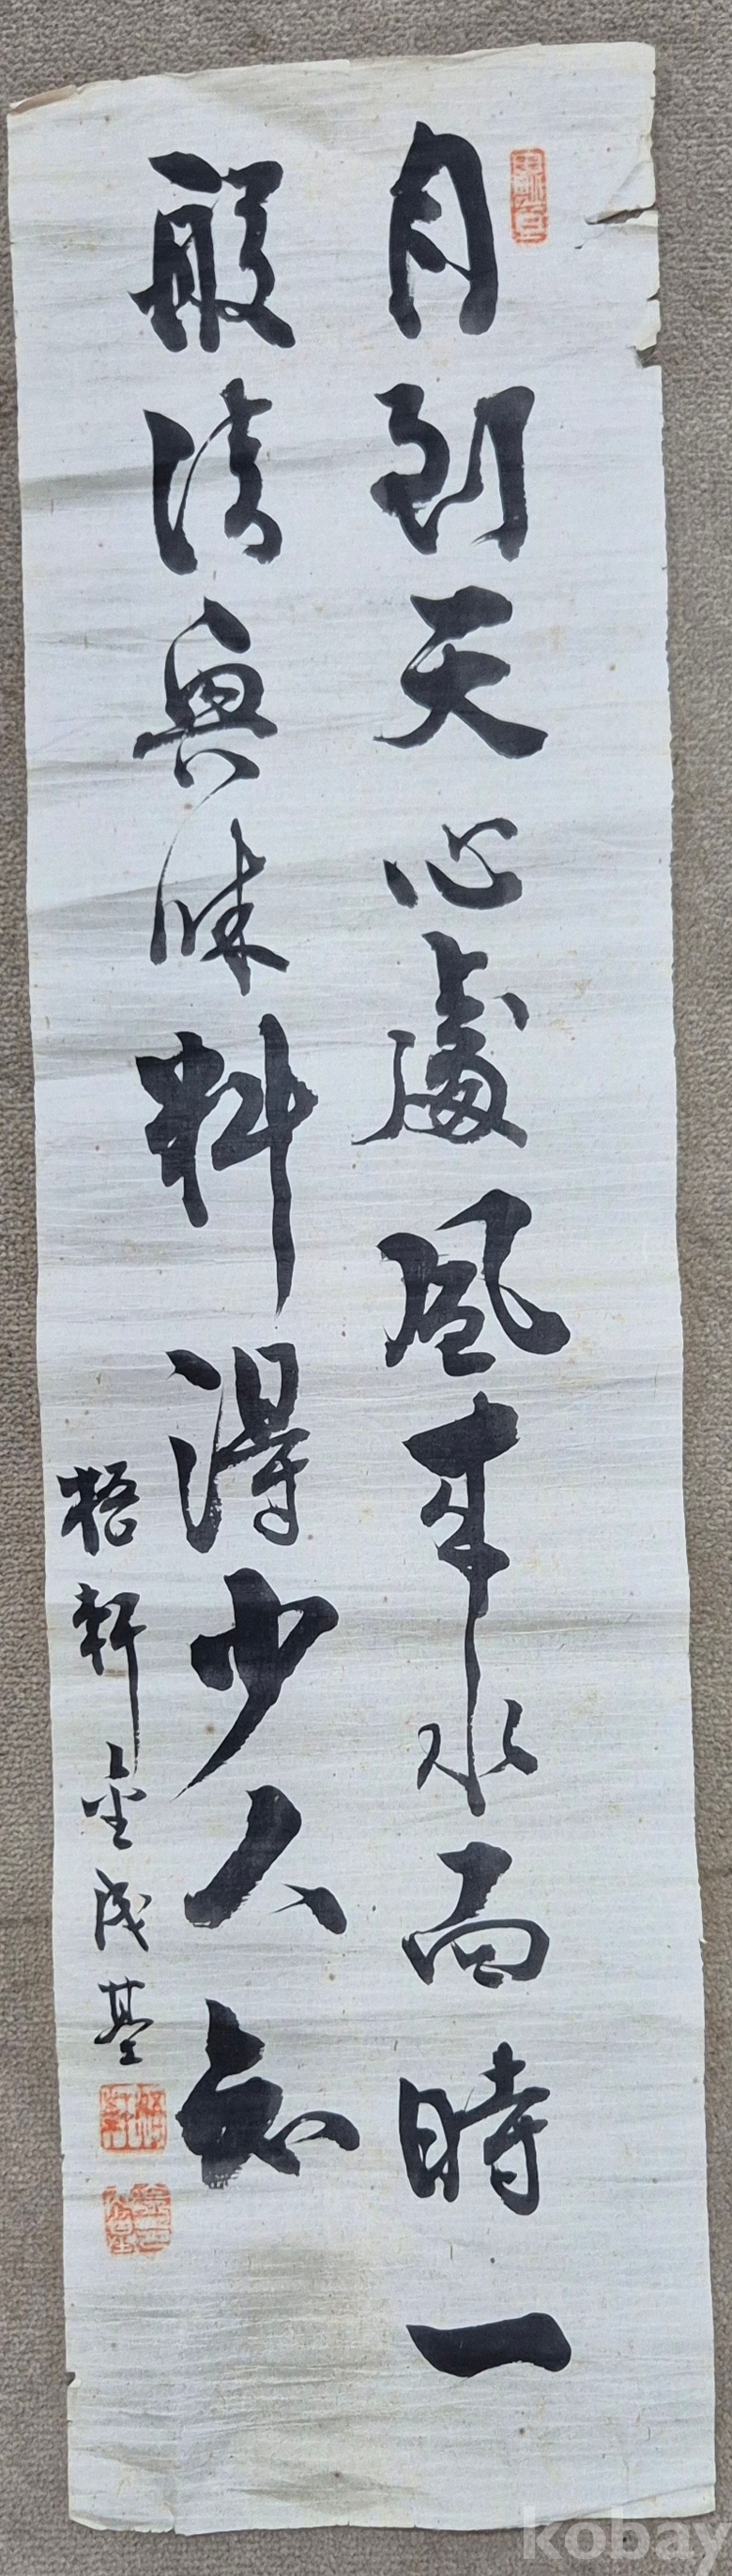 月到天心處風来水面時一
般清興味料得少人知
梧軒金成基
kobay